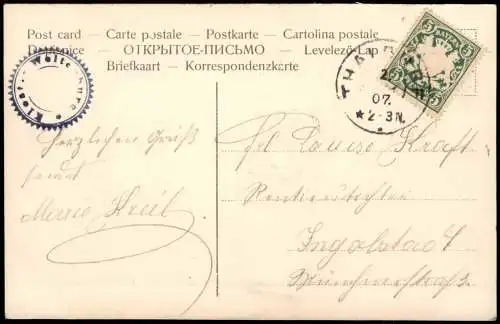 Post card — Carte postale — Postkarte — Cartolina postale
— ОТКРЫТОЕ-ПИСЬМО — Levelező-Lap
Briefkaart — Korrespondenzkarte
Kloster Weltenburg
THA
07.
★2-3N.
5 5
5 5
Herzlichen Gruß
sendet
Frl Louise Kraft
Rentierstochter
Ingolstadt
Münchnerstraße